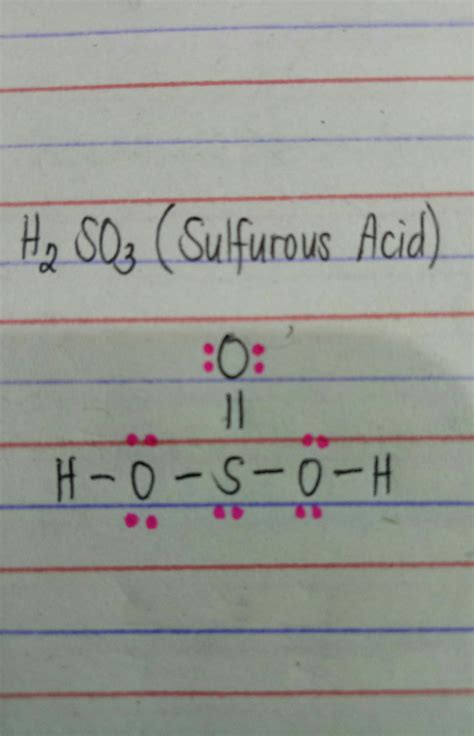 H₂ SO₃ (Sulfurous Acid)
:O:
||
H-O-S-O-H